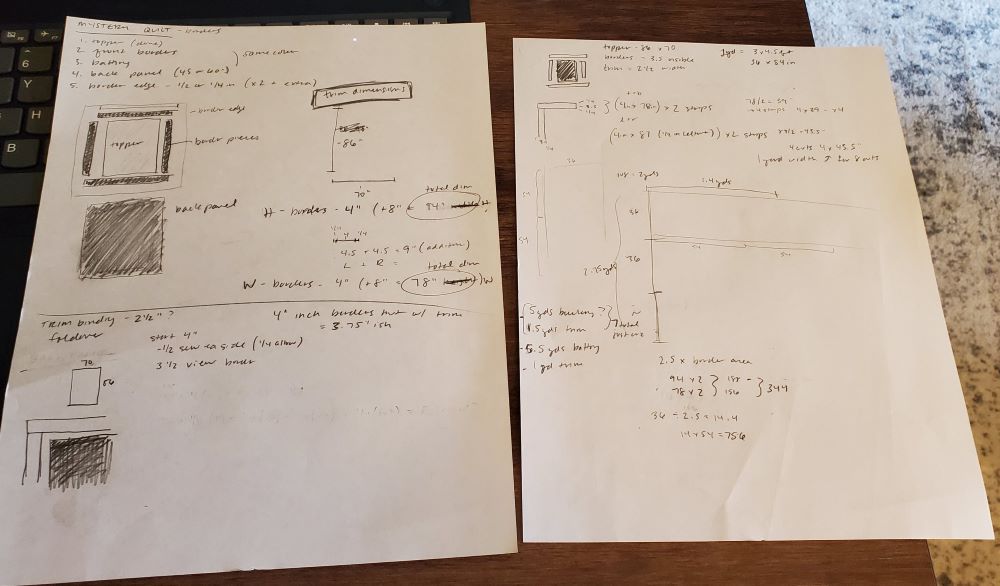 MYSTERY QUILT - borders
1. topper (done)
2. front borders
3. batting
4. back panel (45 or 60")
5. border edge - 1/2 or 1/4 in (x2 + extra)
same color
trim dimensions
border edge
topper
border pieces
-86"
70"
back panel
total dim
H - borders - 4" (+8" =
4.5 + 4.5 = 9" (addition)
L + R =
total dim
W - borders - 4" (+8" = 78" W
TRIM binding - 2 1/2" ?
foldover
4" inch borders but w/ trim
= 3.75" ish
start 4"
-1/2 sew ea side (1/4 allow)
3 1/2 view border
70
86
topper - 86 x 70
borders - 3.5 visible
trim = 2 1/2 width
1yd = 3 x 4.5 ft
36 x 54 in
(4in x 78in) x 2 strips
78/2 = 39
4 x 39 - x4
x2 strips
4 cuts 4 x 45.5"
1 yard width
for 8 cuts
36
108 = 3 yds
1.4 yds
54
54
36
36
2.75 yds
54
54
5 yds backing ?
1.5 yds trim
7 total
-5.5 yds batting
- 1 yd trim
2.5 x border area
94 x 2
188
78 x 2
156
344
36 ÷ 2.5 = 14.4
14 x 54 = 756